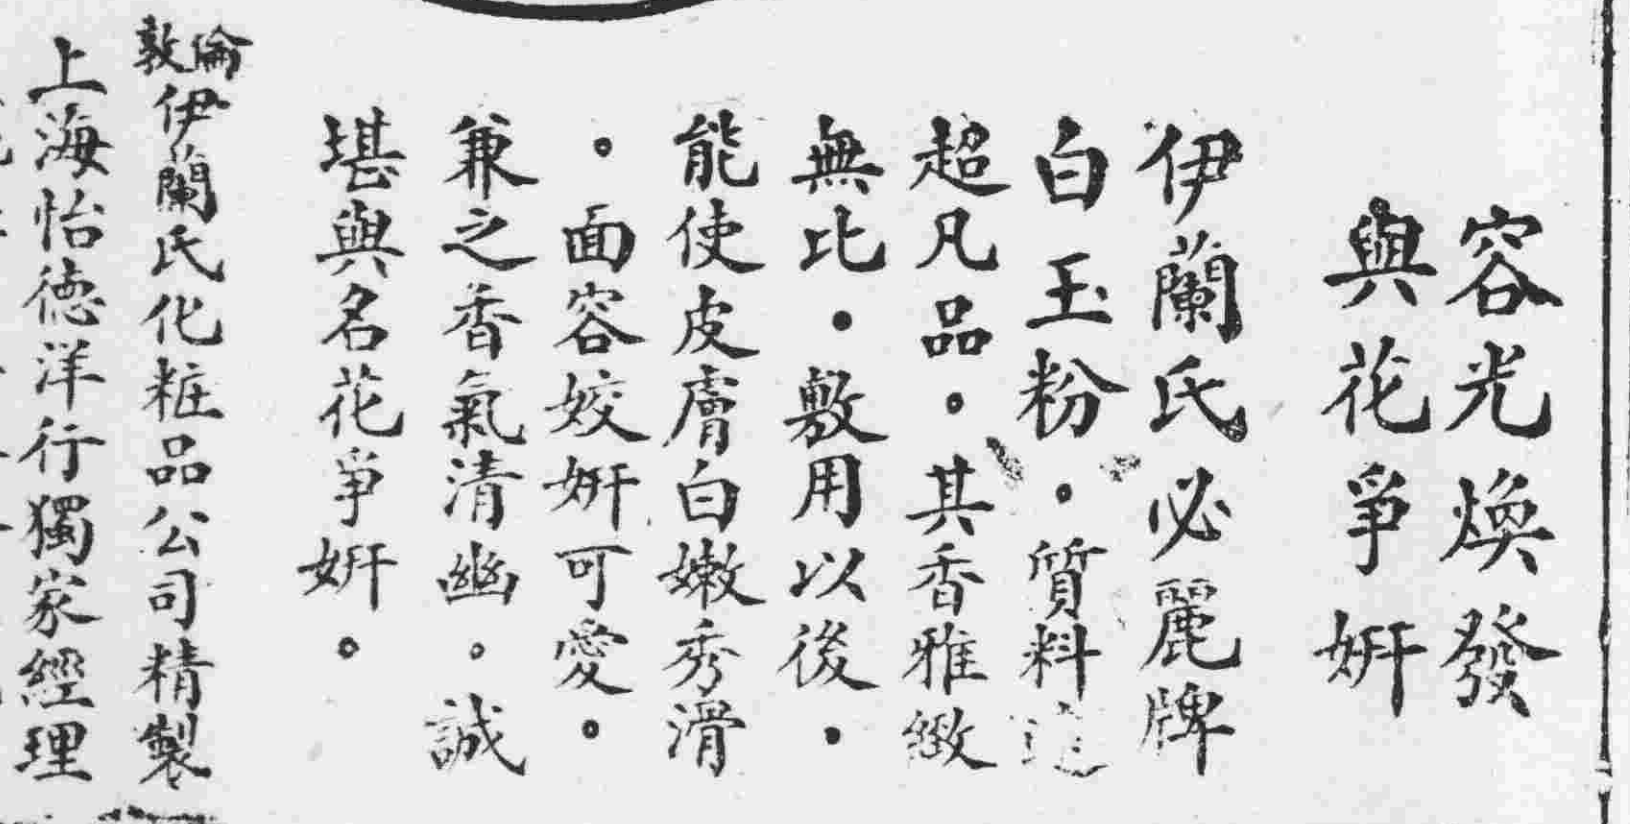 容光煥發
與花爭妍
伊蘭氏必麗牌
白玉粉。質料
超凡品。其香雅緻
無比。敷用以後。
能使皮膚白嫩秀滑
。面容姣妍可愛。
兼之香氣清幽。誠
堪與名花爭妍。
倫敦伊蘭氏化粧品公司精製
上海怡德洋行獨家經理